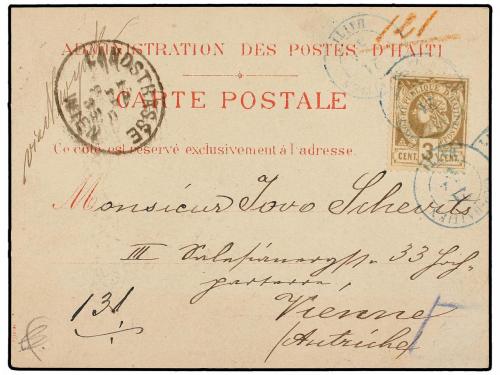 121
ADMINISTRATION DES POSTES D'HAITI
CARTE POSTALE
LANDSTRASSE
WIEN
CENT. 3 CENT.
Ce côté est réservé exclusivement à l'adresse.
Monsieur Jovo Schevits
III Salesianergasse 33 Hoch-
parterre
131
Vienne
(Autriche)